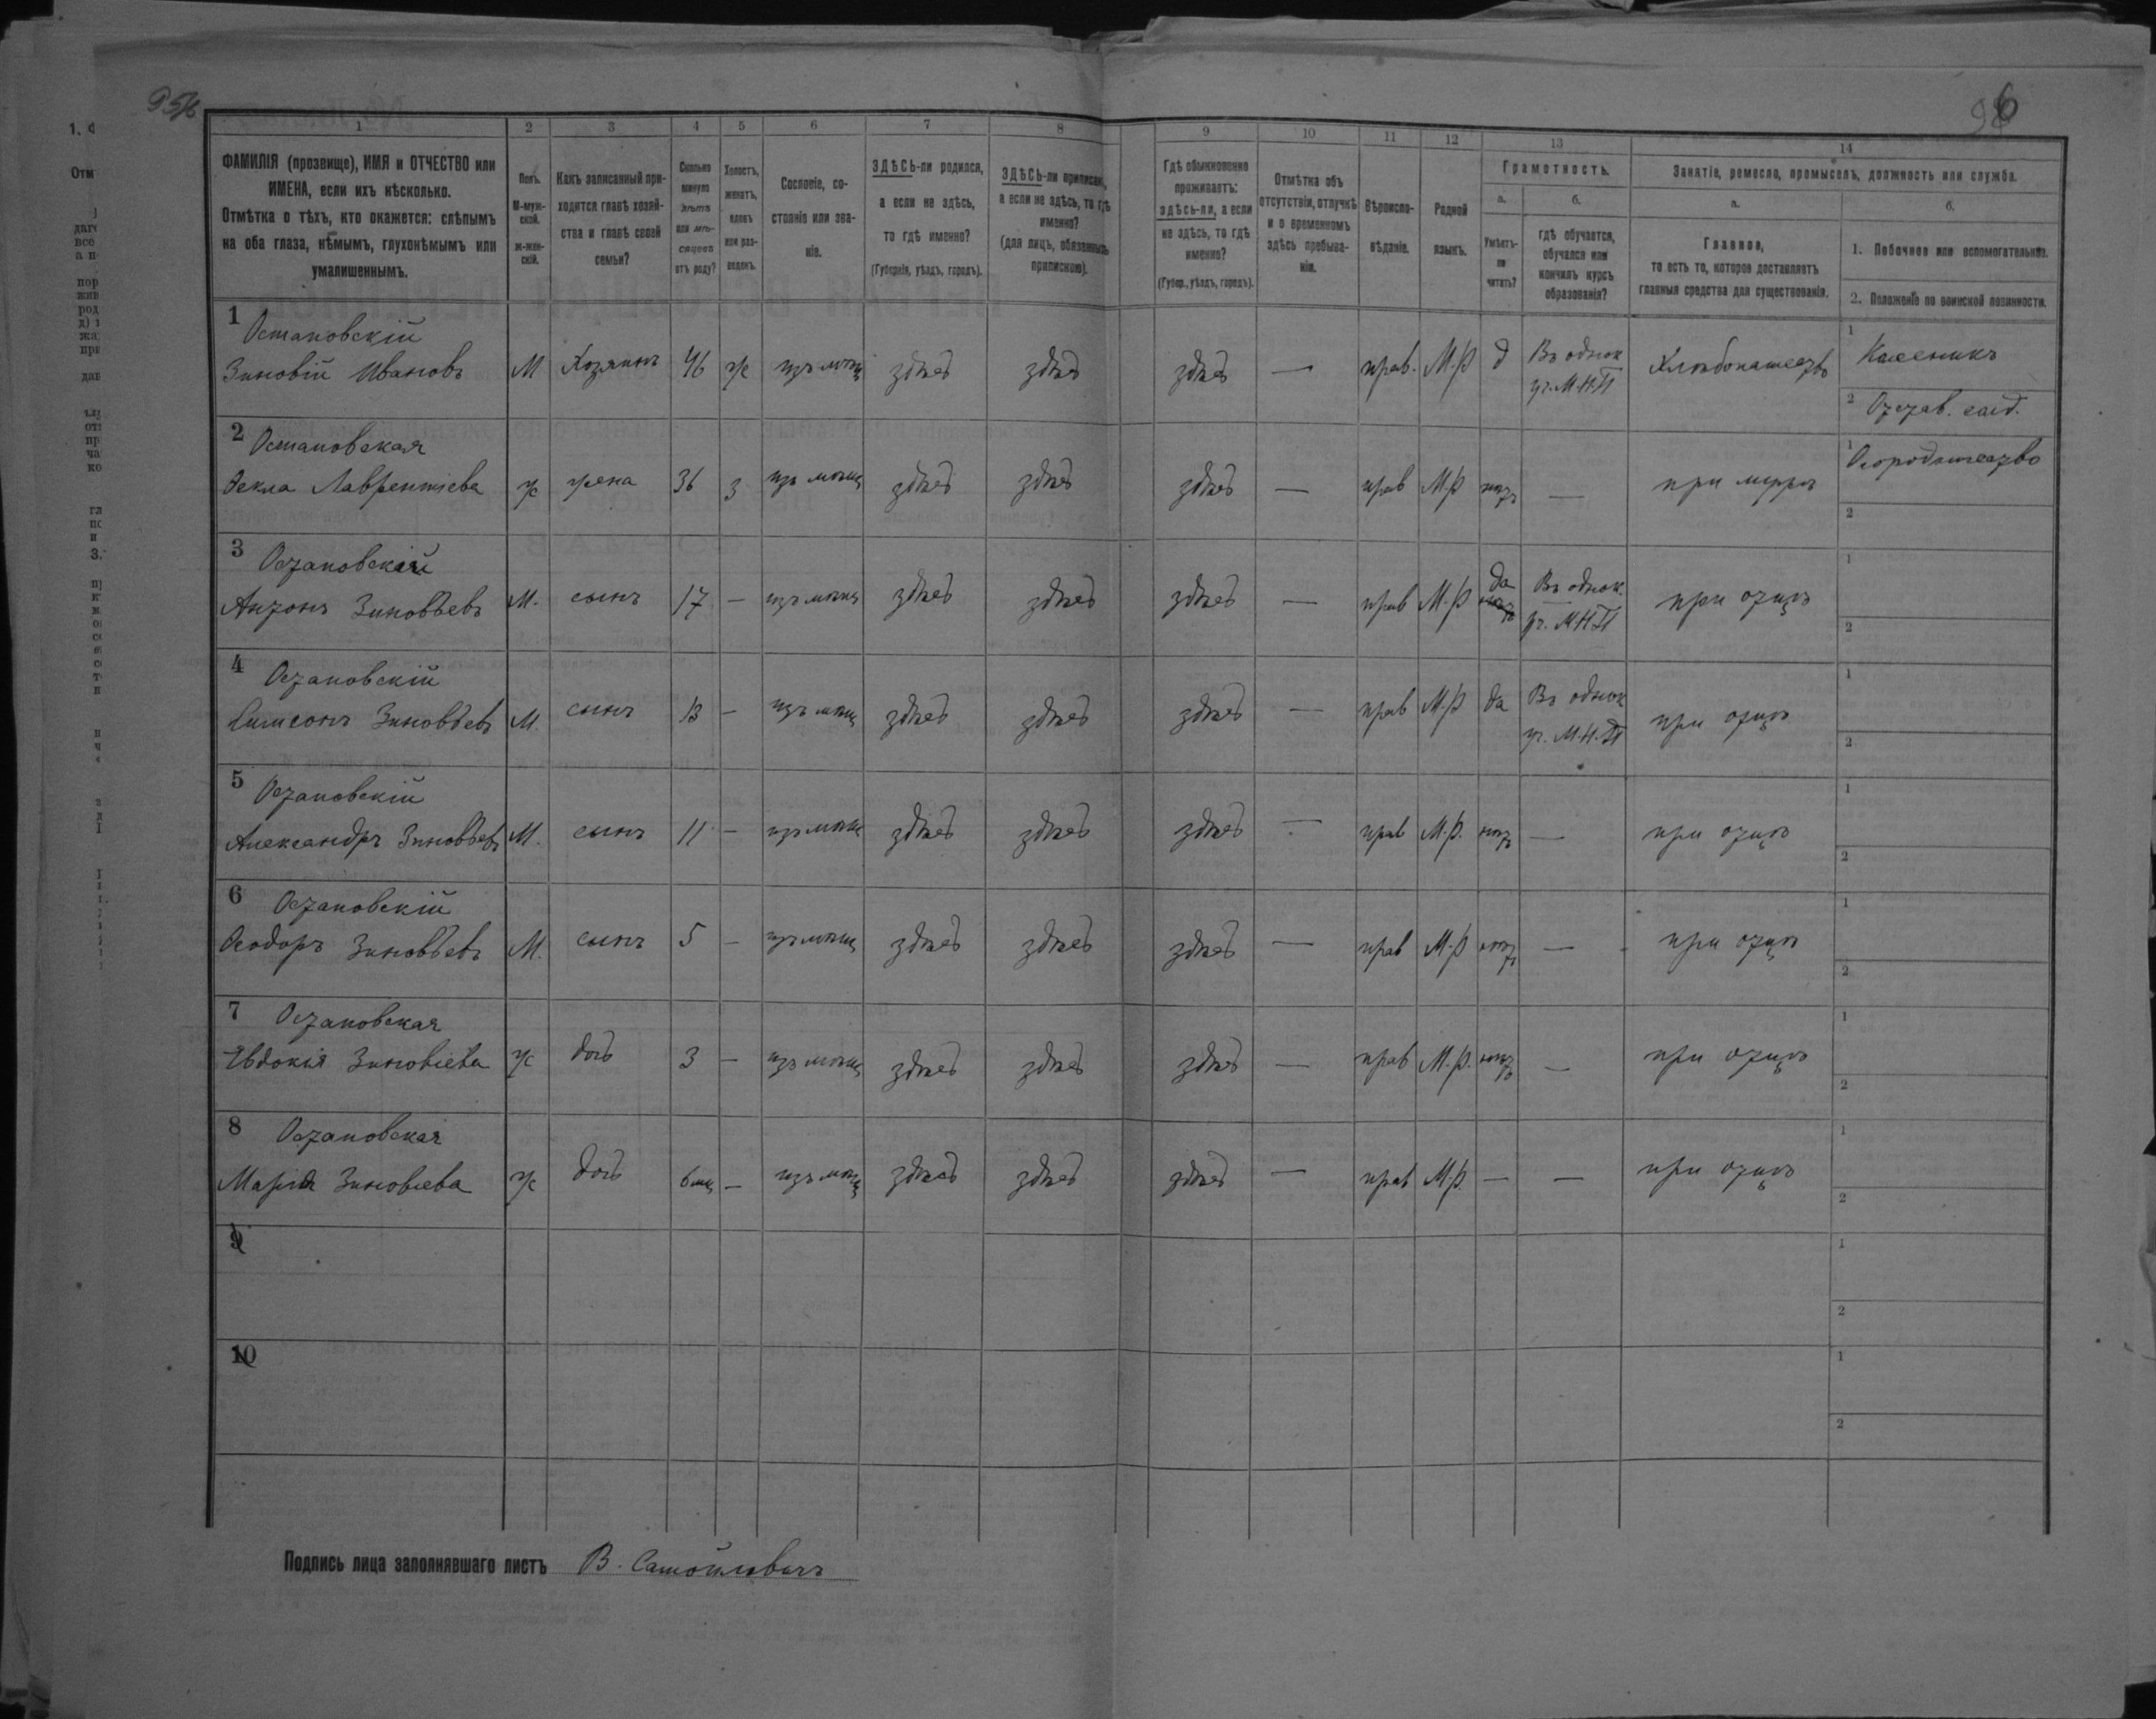 95/6
96
1 2 3 4 5 6 7 8 9 10 11 12 13 14
ФАМИЛІЯ (прозвище), ИМЯ и ОТЧЕСТВО или
ИМЕНА, если ихъ нѣсколько.
Отмѣтка о тѣхъ, кто окажется: слѣпымъ
на оба глаза, нѣмымъ, глухонѣмымъ или
умалишеннымъ.
Полъ.
М-муж-
ской.
ж-жен-
скій.
Какъ записанный при-
ходится главѣ хозяй-
ства и главѣ своей
семьи?
Сколько
минуло
лѣтъ
или мѣ-
сяцевъ
отъ роду?
Холостъ,
женатъ,
вдовъ
или раз-
веденъ.
Сословіе, со-
стояніе или зва-
ніе.
ЗДѢСЬ-ли родился,
а если не здѣсь,
то гдѣ именно?
(Губернія, уѣздъ, городъ).
ЗДѢСЬ-ли приписанъ,
а если не здѣсь, то гдѣ
именно?
(для лицъ, обязанныхъ
припискою).
Гдѣ обыкновенно
проживаетъ:
здѣсь-ли, а если
не здѣсь, то гдѣ
именно?
(Губер., уѣздъ, городъ).
Отмѣтка объ
отсутствіи, отлучкѣ
и о временномъ
здѣсь пребыва-
ніи.
Вѣроиспо-
вѣданіе.
Родной
языкъ.
Грамотность.
а.
Умѣетъ-
ли
читать?
б.
гдѣ обучается,
обучался или
кончилъ курсъ
образованія?
Занятіе, ремесло, промыселъ, должность или служба.
а.
Главное,
то есть то, которое доставляетъ
главныя средства для существованія.
б.
1. Побочное или вспомогательное.
2. Положеніе по воинской повинности.
1 Остановскій
Зиновій Ивановъ М Хозяинъ 46 ж изъ мѣщ здѣсь здѣсь здѣсь — прав. М.р д Въ однок уч. М.Н.П Хлѣбопашество
1 Каменникъ
2 Отстав. солд.
2 Остановская
Текла Лаврентіева ж жена 36 з изъ мѣщ здѣсь здѣсь здѣсь — прав М.р нѣтъ — при мужѣ
1 Огородничество
2
3 Остановскій
Антонъ Зиновьевъ М. сынъ 17 — изъ мѣщ здѣсь здѣсь здѣсь — прав М.р да Въ однок. уч. МНП при отцѣ
1
2
4 Остановскій
Симеонъ Зиновьевъ М. сынъ 13 — изъ мѣщ здѣсь здѣсь здѣсь — прав М.р да Въ однок уч. М.Н.П при отцѣ
1
2
5 Остановскій
Александръ Зиновьевъ М. сынъ 11 — изъ мѣщ здѣсь здѣсь здѣсь — прав М.р. нѣтъ — при отцѣ
1
2
6 Остановскій
Ѳеодоръ Зиновьевъ М. сынъ 5 — изъ мѣщ здѣсь здѣсь здѣсь — прав М.р нѣтъ — при отцѣ
1
2
7 Остановская
Евдокія Зиновіева ж дочь 3 — изъ мѣщ здѣсь здѣсь здѣсь — прав М.р. нѣтъ — при отцѣ
1
2
8 Остановская
Марія Зиновіева ж дочь 6 мц — изъ мѣщ здѣсь здѣсь здѣсь — прав М.р. — — при отцѣ
1
2
9
1
2
10
1
2
Подпись лица заполнявшаго листъ В. Самойловичъ